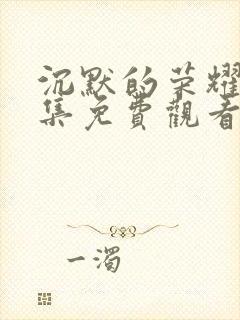 沉默的荣耀
集免費觀看
一濁